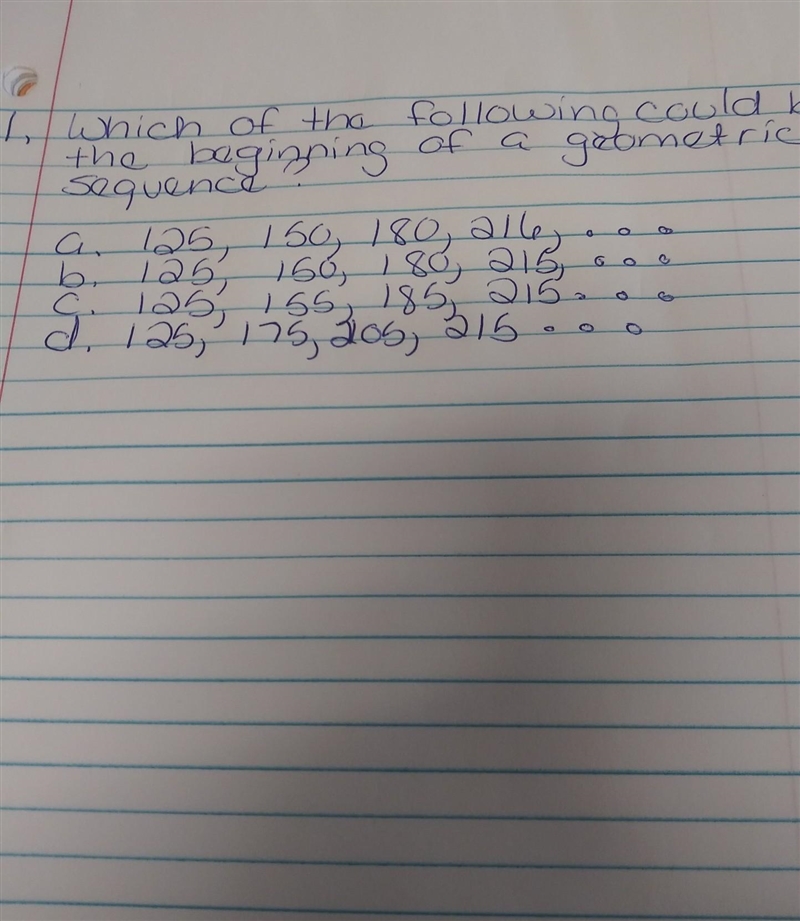 1. Which of the following could b
the beginning of a geometric
sequence?
a. 125, 150, 180, 216, . . .
b. 125, 150, 180, 215, . . .
c. 125, 155, 185, 215 . . .
d. 125, 175, 205, 215 . . .